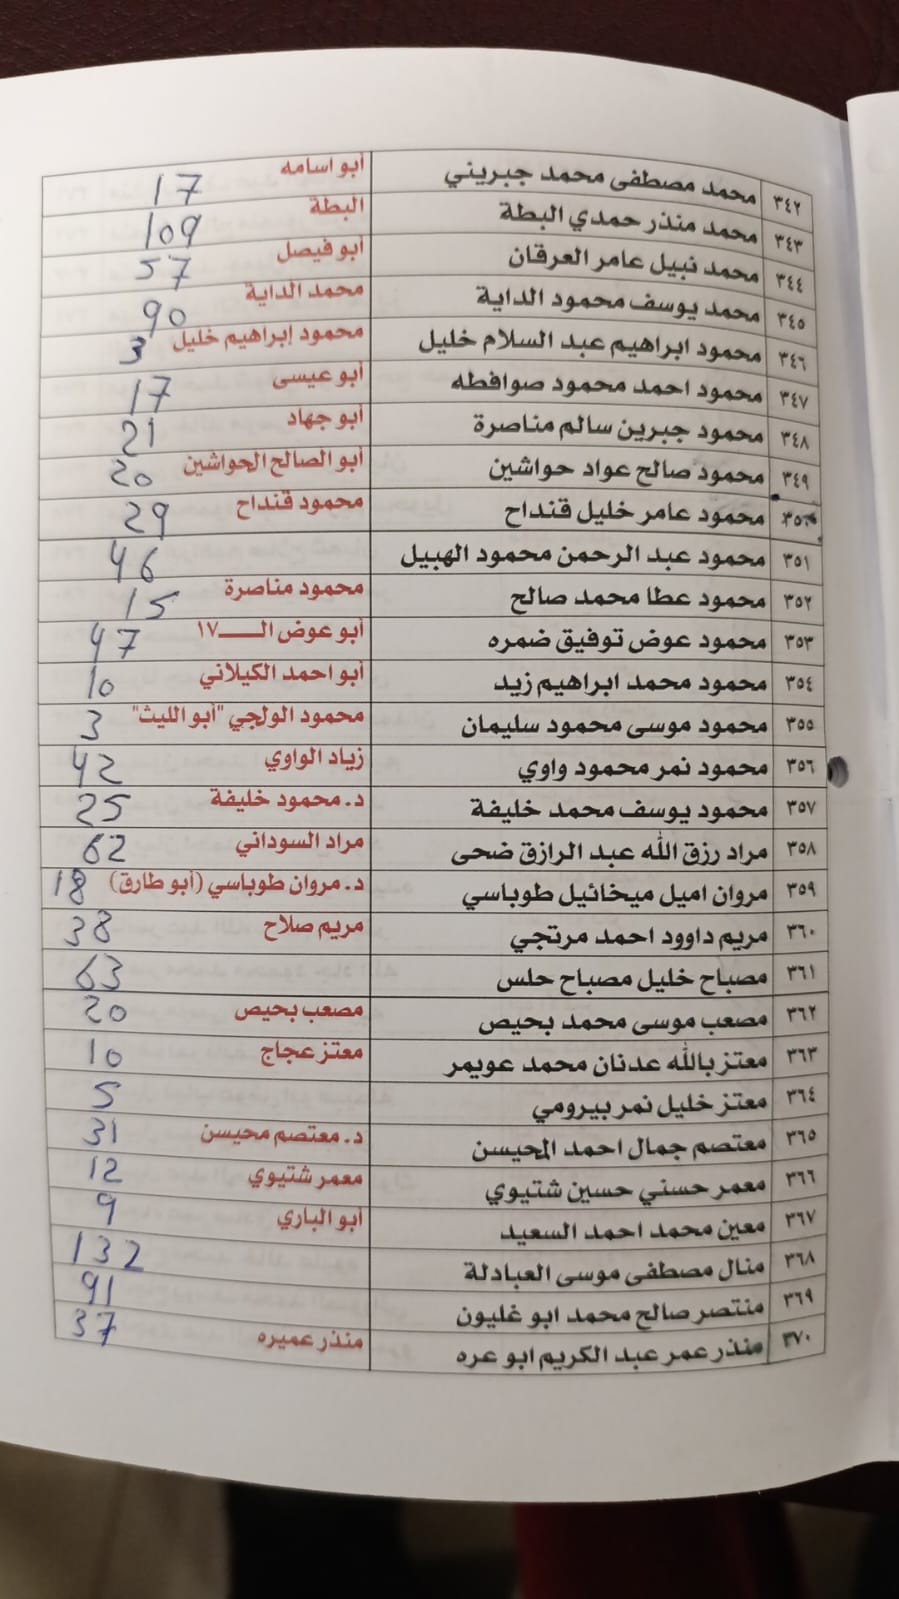 ٣٤٢ محمد مصطفى محمد جبريني أبو اسامه 17
٣٤٣ محمد منذر حمدي البطة البطة 109
٣٤٤ محمد نبيل عامر العرقان أبو فيصل 57
٣٤٥ محمد يوسف محمود الداية محمد الداية 90
٣٤٦ محمود ابراهيم عبد السلام خليل محمود إبراهيم خليل 3
٣٤٧ محمود احمد محمود صوافطه أبو عيسى 17
٣٤٨ محمود جبرين سالم مناصرة أبو جهاد 21
٣٤٩ محمود صالح عواد حواشين أبو الصالح الحواشين 20
٣٥٠ محمود عامر خليل قنداح محمود قنداح 29
٣٥١ محمود عبد الرحمن محمود الهبيل 46
٣٥٢ محمود عطا محمد صالح محمود مناصرة 15
٣٥٣ محمود عوض توفيق ضمره أبو عوض الـــــ ١٧ 47
٣٥٤ محمود محمد ابراهيم زيد أبو احمد الكيلاني 10
٣٥٥ محمود موسى محمود سليمان محمود الولجي "أبو الليث" 3
٣٥٦ محمود نمر محمود واوي زياد الواوي 42
٣٥٧ محمود يوسف محمد خليفة د. محمود خليفة 25
٣٥٨ مراد رزق الله عبد الرازق ضحى مراد السوداني 62
٣٥٩ مروان اميل ميخائيل طوباسي د. مروان طوباسي (أبو طارق) 18
٣٦٠ مريم داوود احمد مرتجي مريم صلاح 38
٣٦١ مصباح خليل مصباح حلس 63
٣٦٢ مصعب موسى محمد بحيص مصعب بحيص 20
٣٦٣ معتز بالله عدنان محمد عويمر معتز عجاج 10
٣٦٤ معتز خليل نمر بيرومي 5
٣٦٥ معتصم جمال احمد المحيسن د. معتصم محيسن 31
٣٦٦ معمر حسني حسين شتيوي معمر شتيوي 12
٣٦٧ معين محمد احمد السعيد أبو الباري 9
٣٦٨ منال مصطفى موسى العبادلة 132
٣٦٩ منتصر صالح محمد ابو غليون 91
٣٧٠ منذر عمر عبد الكريم ابو عره منذر عميره 37